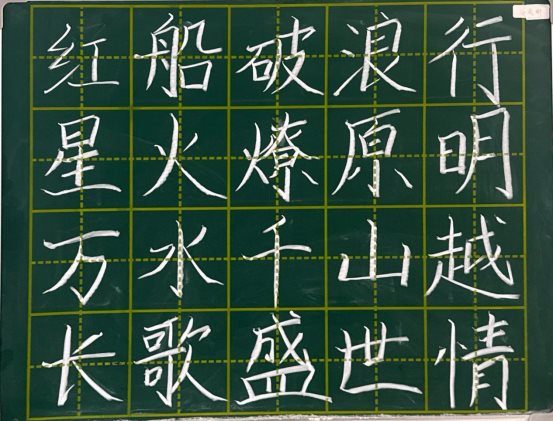 红船破浪行
星火燎原明
万水千山越
长歌盛世情